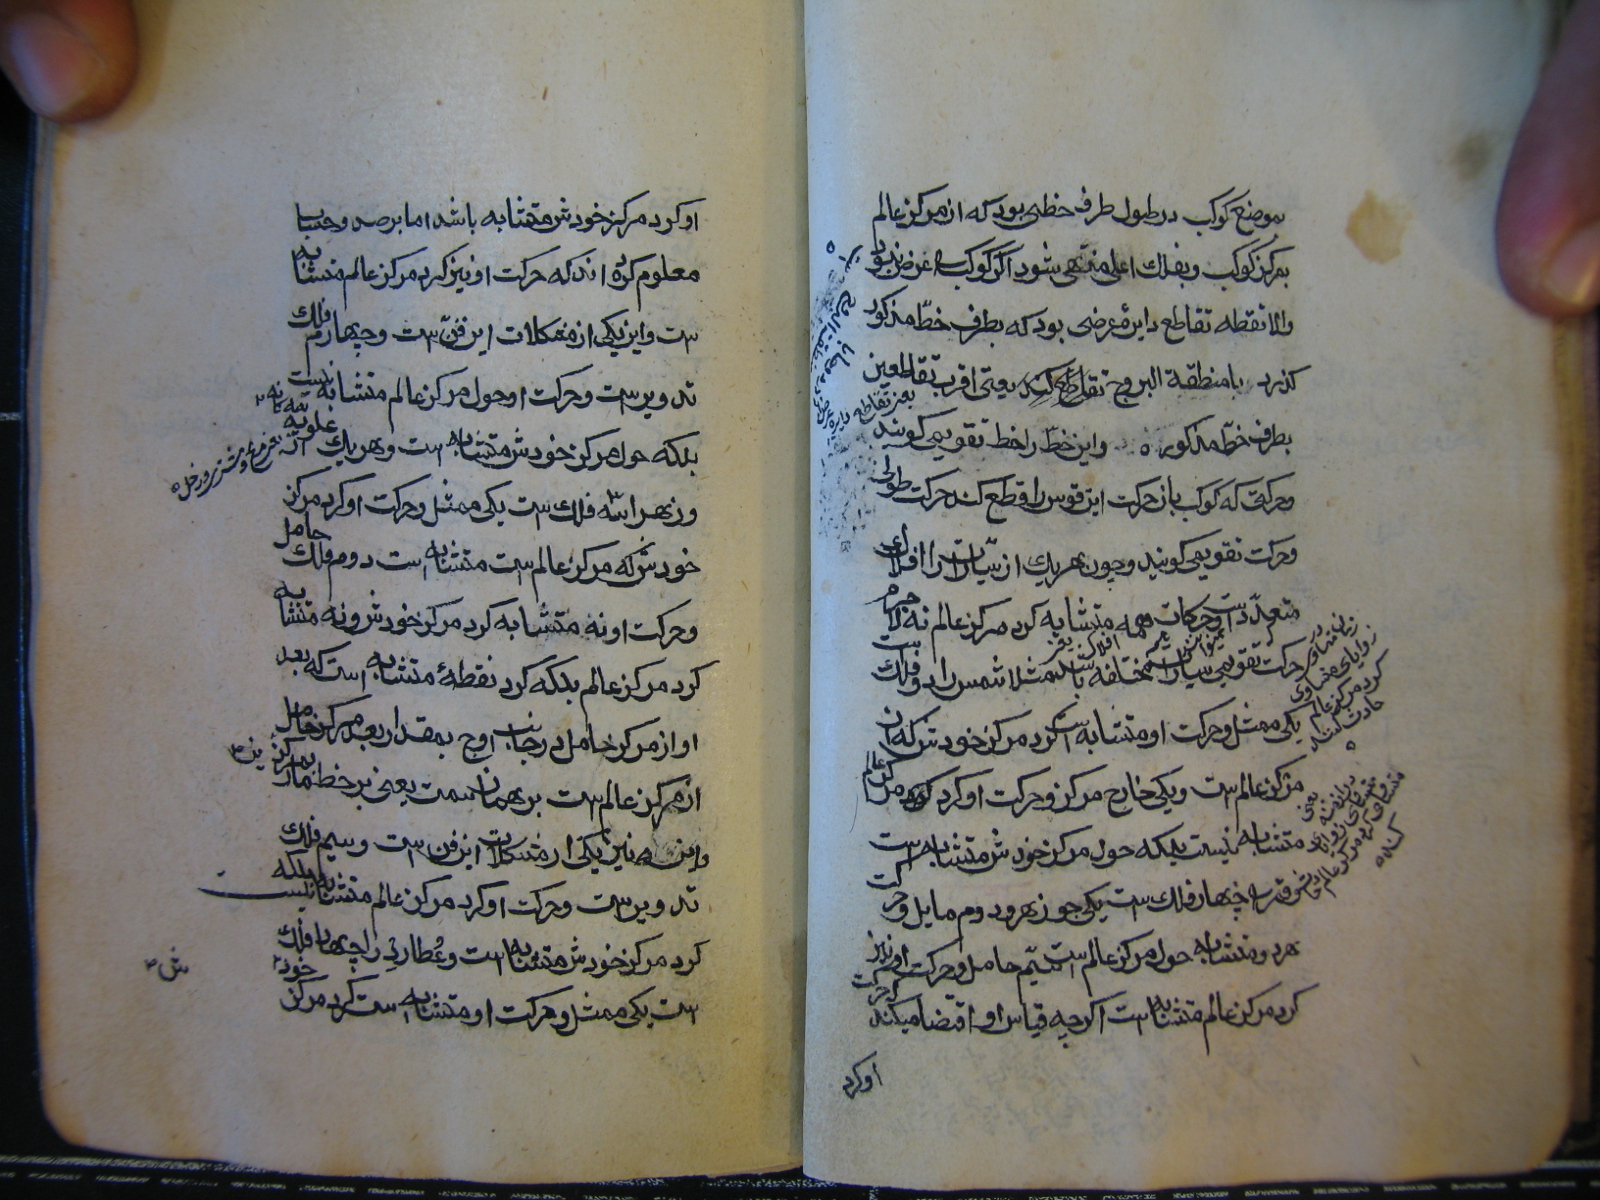 موضع کوکب در طول طرف خطی بود که از مرکز عالم
بمرکز کوکب و بفلک اعلی منتهی شود اگر کوکب را عرض نبود
والا نقطه تقاطع دایرهٔ عرضی بود که بطرف خطّ مذکور
کذرد با منطقة البروج تقاطع کند یعنی اقرب تقاطعین
بطرف خطّ مذکوره و این خطّ را خط تقویمی کویند
وحرکتی که کوکب بآن حرکت این قوس را قطع کند حرکت طولی
وحرکت تقویمی کویند و چون هر یک از سیّارات را افلاک
متعدّد است و حرکات همه متشابه کرد مرکز عالم نه لا جرم
حرکت تقویمی سیارات مختلفه باشد مثلا شمس را دو فلک است
یکی ممثل و حرکت او متشابه است کرد مرکز خودش که آن
مرکز عالم ست و یکی خارج مرکز و حرکت او کرد مرکز عالم
متشابه نیست بلکه حول مرکز خودش متشابه است
و قمر را چهار فلک ست یکی جوزهر و دوم مایل و حرکت
هر دو متشابه حول مرکز عالم است سیّم حامل و حرکت او نیز
کرد مرکز عالم متشابه است اکرچه قیاس او اقتضا میکند که حرکت
او کرد
او کرد مرکز خودش متشابه باشد اما برصد و حساب
معلوم کرده اند که حرکت او نیز کرد مرکز عالم متشابه
ست و این یکی از مشکلات این فنّ ست و چهارم فلک
تدویر ست و حرکت او حول مرکز عالم متشابه نیست
بلکه حول مرکز خودش متشابه است و هر یک از علویه
مریخ و مشتری و زحل
و زهرا سه فلک ست یکی ممثل و حرکت او کرد مرکز
خودش که مرکز عالم ست متشابه است دوم فلک حامل
و حرکت او نه متشابه کرد مرکز خودش و نه متشابه
کرد مرکز عالم بلکه کرد نقطهٔ متشابه است که بعد
او از مرکز حامل در جانب اوج بمقدار بعد مرکز حامل
از مرکز عالم ست بر همان سمت یعنی بر خط مار بمرکزین
و این نیز یکی از مشکلات این فن ست و سیم فلک
تدویر ست و حرکت او کرد مرکز عالم متشابه نیست بلکه
کرد مرکز خودش متشابه است و عُطارد را چهار فلک
ست یکی ممثل و حرکت او متشابه است کرد مرکز خود